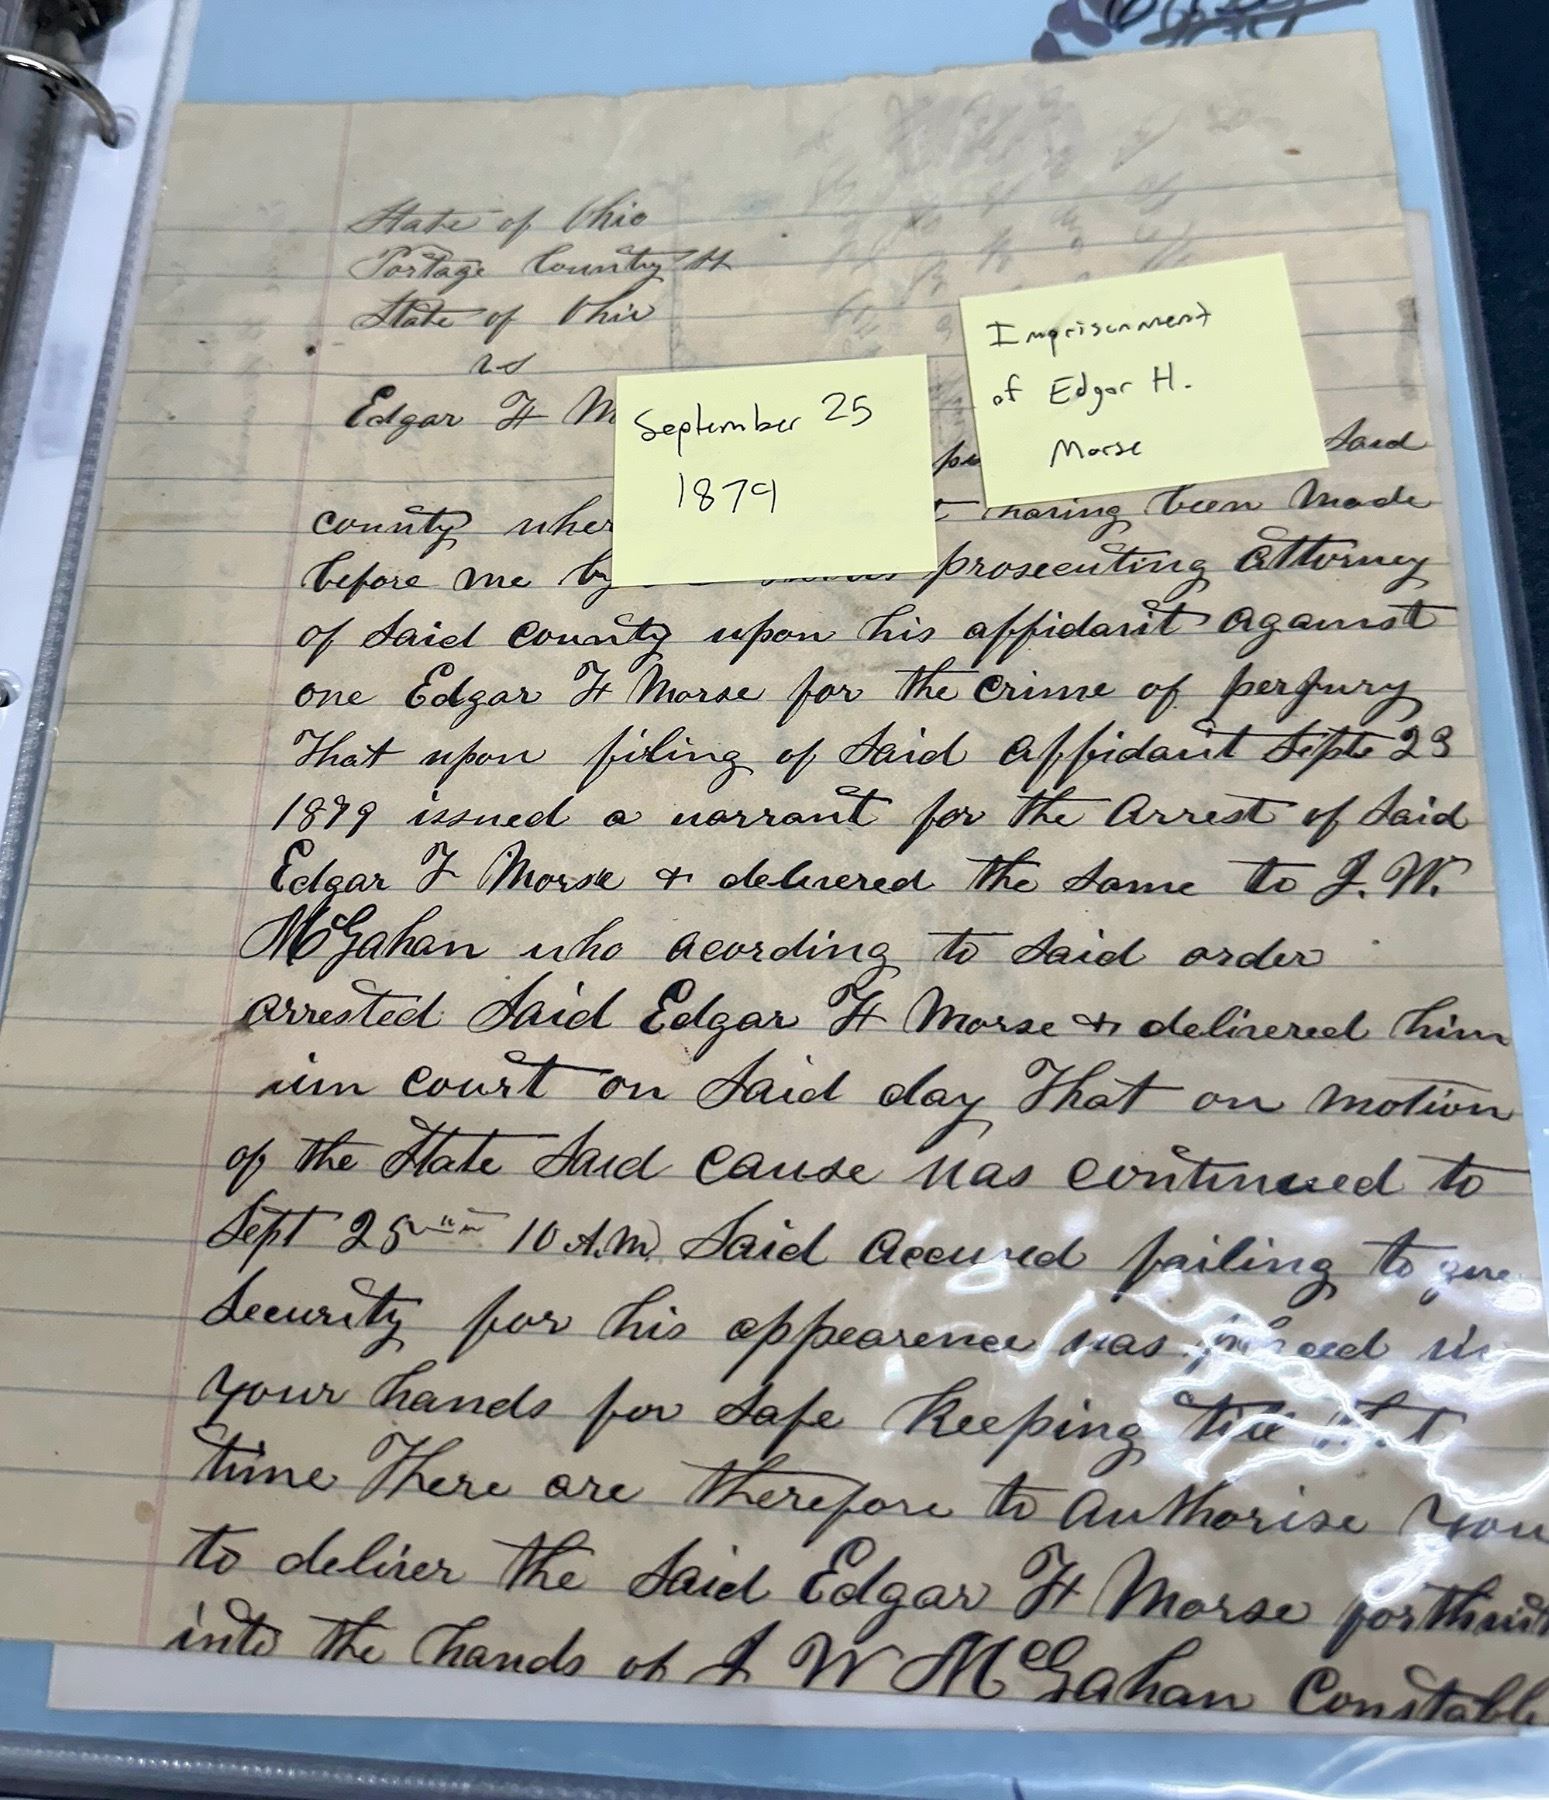 State of Ohio
Portage County SS
State of Ohio
vs
Edgar H M
September 25
1879
Imprisonment
of Edgar H.
Morse
said
county wher having been made
before me by prosecuting attorney
of said county upon his affidavit against
one Edgar H Morse for the crime of perjury
That upon filing of said affidavit Septe 23
1879 issued a warrant for the arrest of said
Edgar H Morse & delivered the same to J. W.
McGahan who acording to said order
arrested said Edgar H Morse & delivered him
in court on said day That on motion
of the State said cause was continued to
Sept 25 10 A.M. said accused failing to give
security for his appearence was placed in
your hands for safe keeping till that
time There are therefore to authorise you
to deliver the said Edgar H Morse forthwith
into the hands of J W McGahan Constable